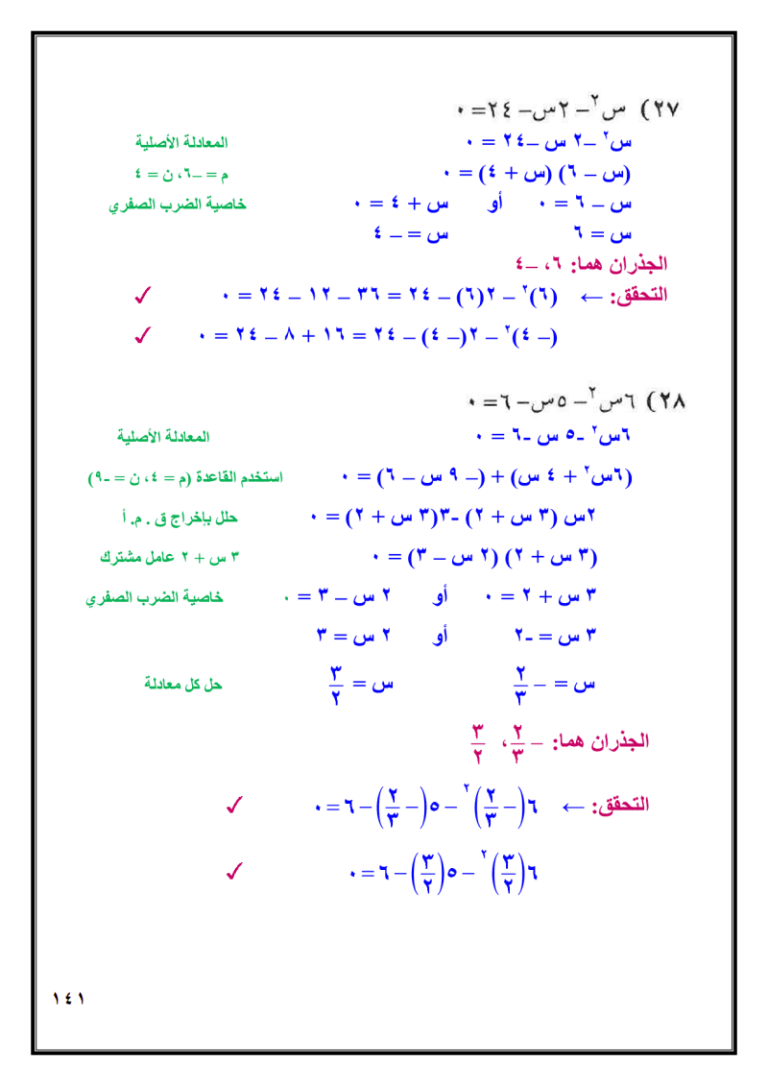 ٢٧) س٢ – ٢س – ٢٤ = ٠
س٢ – ٢ س – ٢٤ = ٠ المعادلة الأصلية
(س – ٦) (س + ٤) = ٠ م = –٦، ن = ٤
س – ٦ = ٠ أو س + ٤ = ٠ خاصية الضرب الصفري
س = ٦ س = – ٤
الجذران هما: ٦، –٤
التحقق: ← (٦)٢ – ٢(٦) – ٢٤ = ٣٦ – ١٢ – ٢٤ = ٠ ✓
(– ٤)٢ – ٢(– ٤) – ٢٤ = ١٦ + ٨ – ٢٤ = ٠ ✓
٢٨) ٦س٢ – ٥س – ٦ = ٠
٦س٢ -٥ س -٦ = ٠ المعادلة الأصلية
(٦س٢ + ٤ س) + (– ٩ س – ٦) = ٠ استخدم القاعدة (م = ٤، ن = -٩)
٢س (٣ س + ٢) -٣(٣ س + ٢) = ٠ حلل بإخراج ق . م. أ
(٣ س + ٢) (٢ س – ٣) = ٠ ٣ س + ٢ عامل مشترك
٣ س + ٢ = ٠ أو ٢ س – ٣ = ٠ خاصية الضرب الصفري
٣ س = -٢ أو ٢ س = ٣
س = – ٢/٣ س = ٣/٢ حل كل معادلة
الجذران هما: – ٢/٣، ٣/٢
التحقق: ← ٦(– ٢/٣)٢ – ٥(– ٢/٣) – ٦ = ٠ ✓
٦(٣/٢)٢ – ٥(٣/٢) – ٦ = ٠ ✓
١٤١